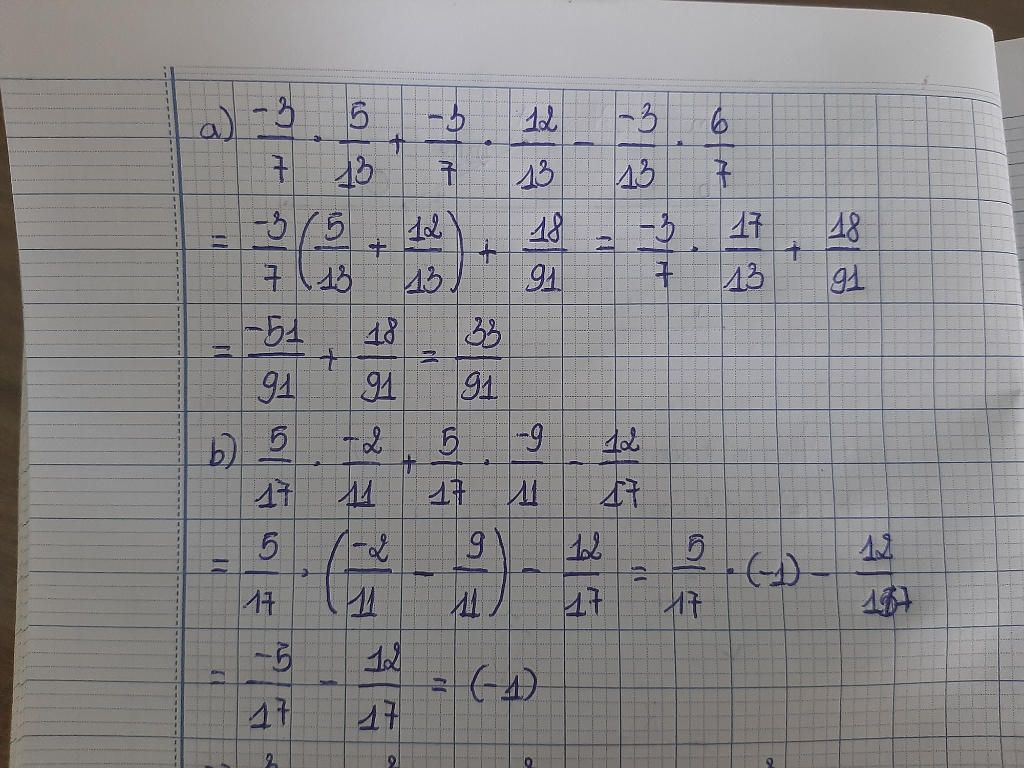 a) -3/7 · 5/13 + -3/7 · 12/13 - -3/13 · 6/7
= -3/7 (5/13 + 12/13) + 18/91 = -3/7 · 17/13 + 18/91
= -51/91 + 18/91 = 33/91
b) 5/17 · -2/11 + 5/17 · -9/11 - 12/17
= 5/17 · (-2/11 - 9/11) - 12/17 = 5/17 · (-1) - 12/17
= -5/17 - 12/17 = (-1)